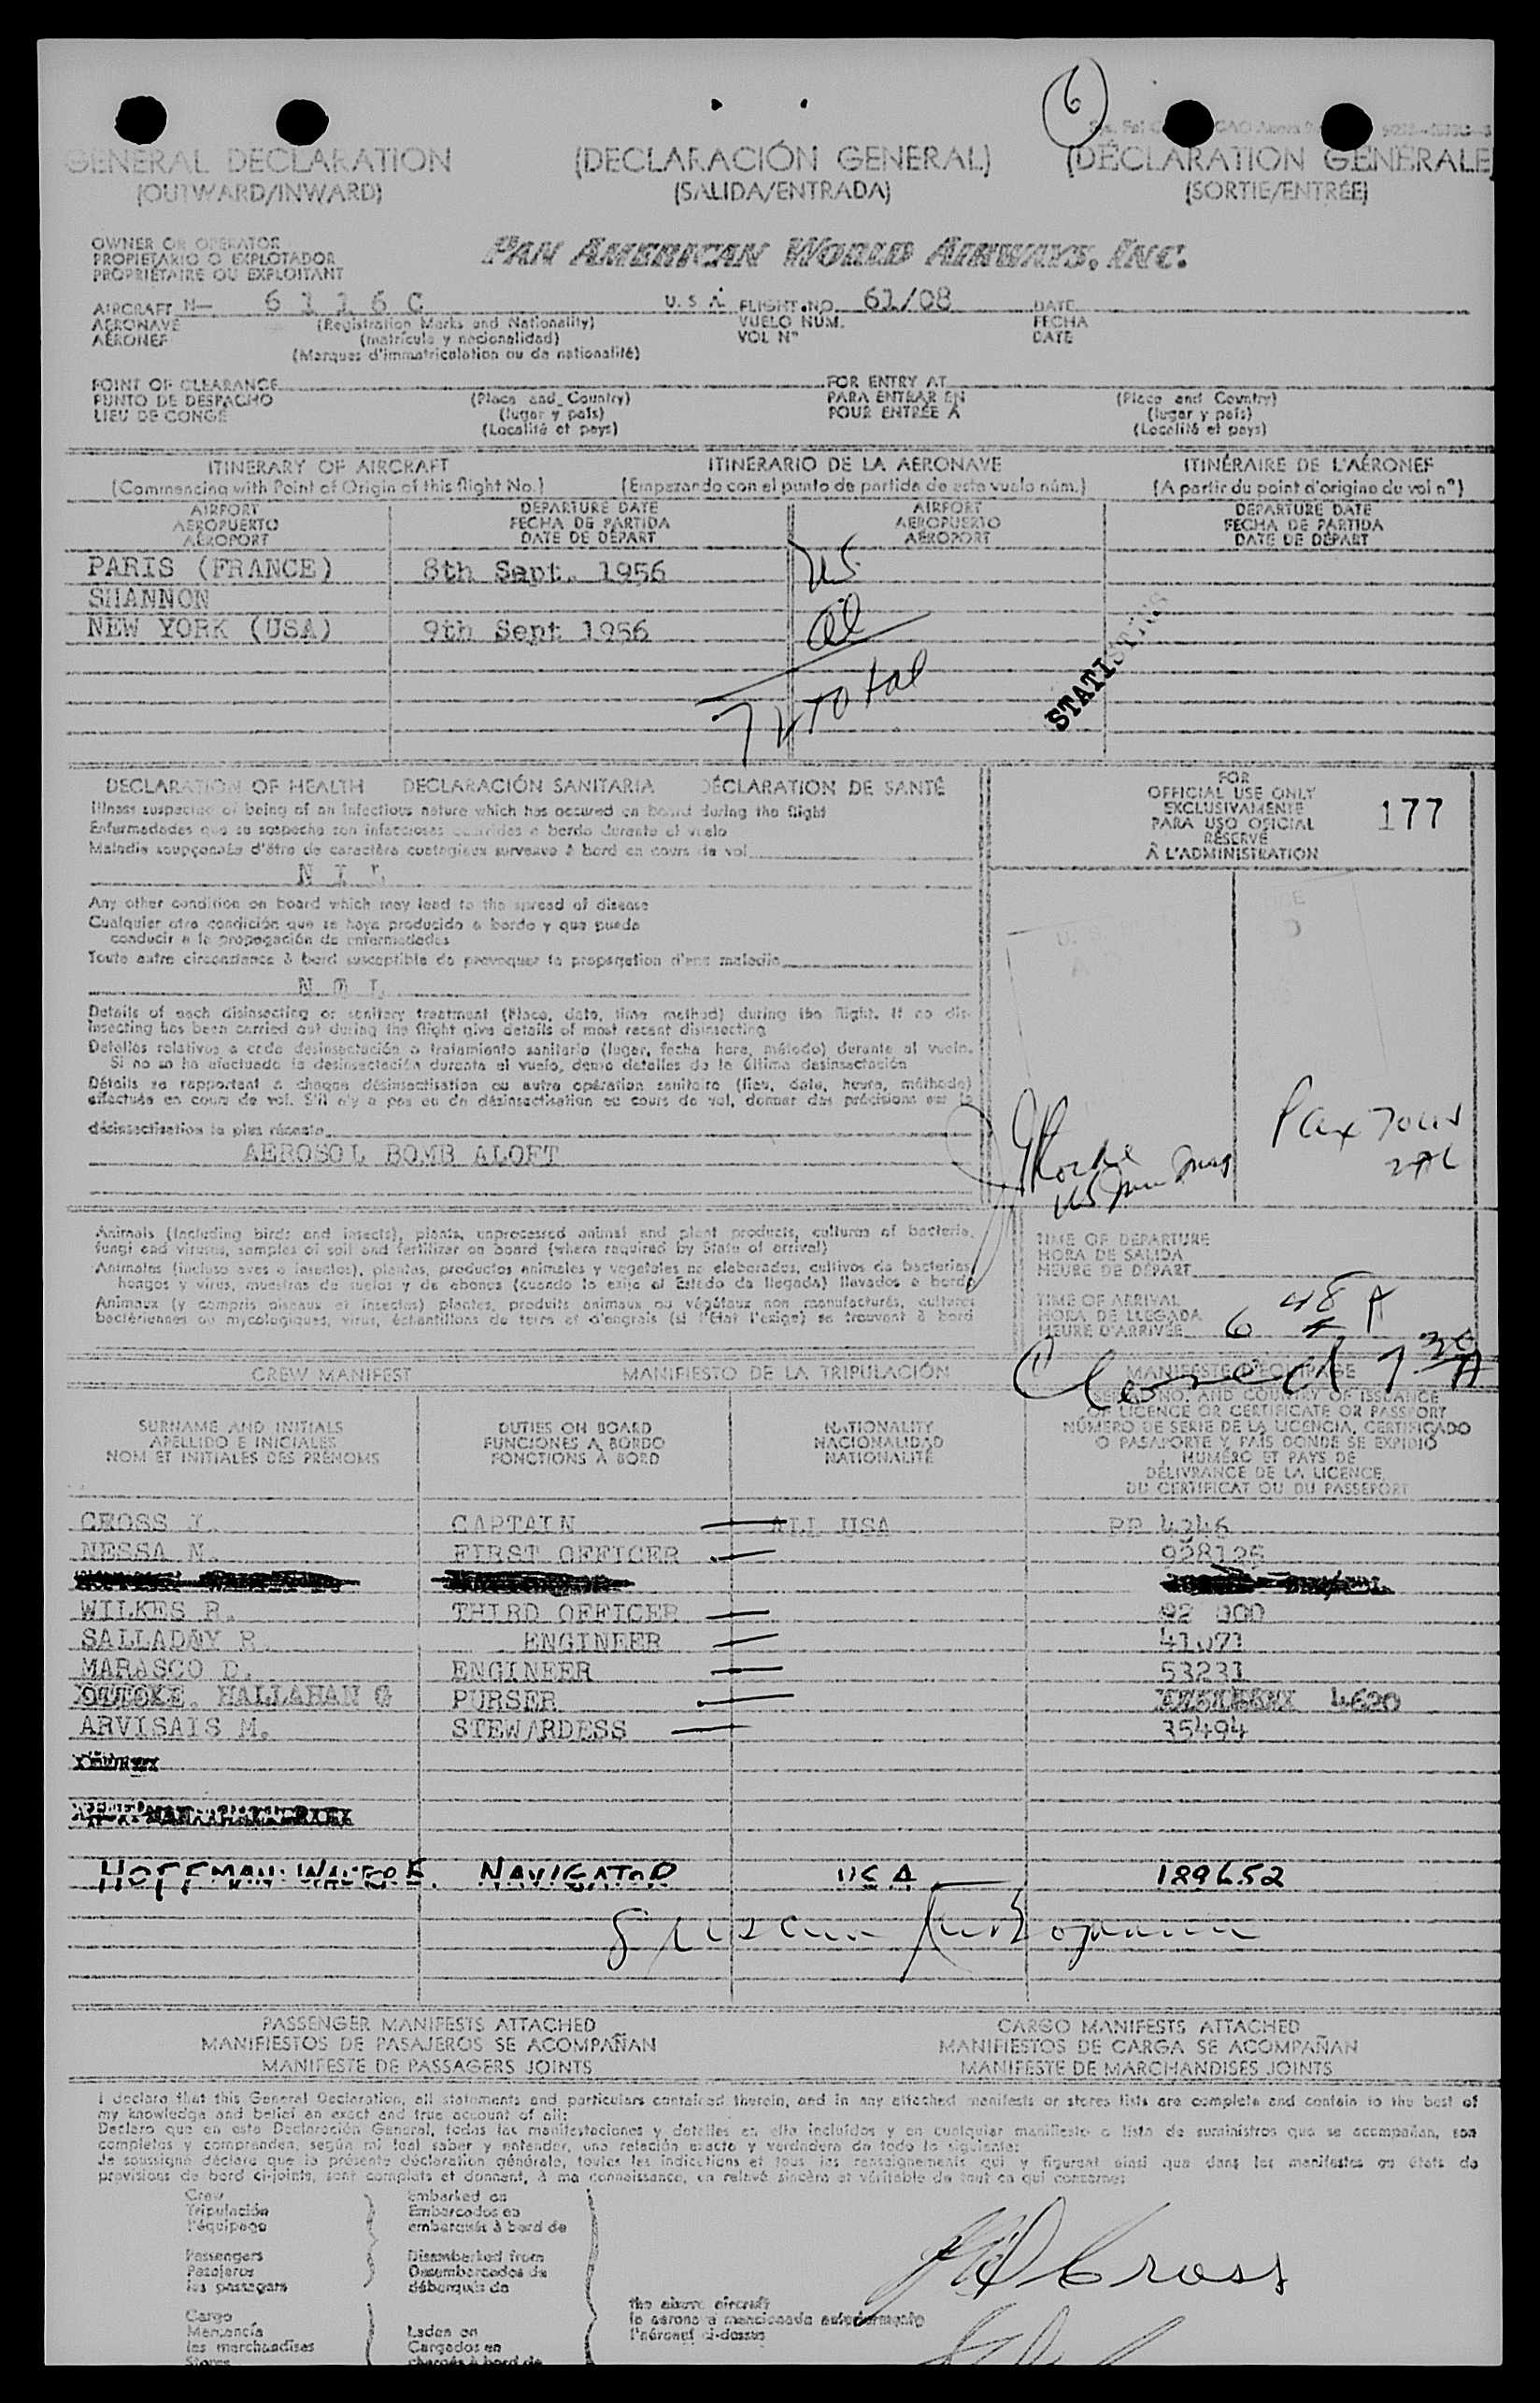 6
GENERAL DECLARATION (DECLARACIÓN GENERAL) (DÉCLARATION GÉNÉRALE
(OUTWARD/INWARD) (SALIDA/ENTRADA) (SORTIE/ENTRÉE)
OWNER OR OPERATOR
PROPIETARIO O EXPLOTADOR
PROPRIÉTAIRE OU EXPLOITANT
PAN AMERICAN WORLD AIRWAYS, INC.
AIRCRAFT N- 6116C U.S.A. FLIGHT NO. 61/08 DATE
AERONAVE (Registration Marks and Nationality) VUELO NÚM. FECHA
AÉRONEF (matrícula y nacionalidad) VOL N° DATE
(Marques d'immatriculation ou de nationalité)
POINT OF CLEARANCE FOR ENTRY AT
PUNTO DE DESPACHO (Place and Country) PARA ENTRAR EN (Place and Country)
LIEU DE CONGÉ (lugar y país) POUR ENTRÉE À (lugar y país)
(Localité et pays) (Localité et pays)
ITINERARY OF AIRCRAFT ITINERARIO DE LA AERONAVE ITINÉRAIRE DE L'AÉRONEF
(Commencing with Point of Origin of this flight No.) (Empezando con el punto de partida de este vuelo núm.) (A partir du point d'origine du vol n°)
AIRPORT DEPARTURE DATE AIRPORT DEPARTURE DATE
AEROPUERTO FECHA DE PARTIDA AEROPUERTO FECHA DE PARTIDA
AÉROPORT DATE DE DÉPART AÉROPORT DATE DE DÉPART
PARIS (FRANCE) 8th Sept. 1956 US
SHANNON
NEW YORK (USA) 9th Sept 1956 al
Total
STATISTICS
DECLARATION OF HEALTH DECLARACIÓN SANITARIA DÉCLARATION DE SANTÉ
Illness suspected of being of an infectious nature which has occured on board during the flight
Enfermedades que se sospecha son infecciosas ocurridas a bordo durante el vuelo
Maladie soupçonnée d'être de caractère contagieux survenue à bord en cours de vol
N I L
FOR
OFFICIAL USE ONLY
EXCLUSIVAMENTE
PARA USO OFICIAL
RÉSERVÉ
À L'ADMINISTRATION
177
Any other condition on board which may lead to the spread of disease
Cualquier otra condición que se haya producido a bordo y que pueda
conducir a la propagación de enfermedades
Toute autre circonstance à bord susceptible de provoquer la propagation d'une maladie
Details of each disinsecting or sanitary treatment (Place, date, time method) during the flight. If no dis-
insecting has been carried out during the flight give details of most recent disinsecting
Detalles relativos a cada desinsectación o tratamiento sanitario (lugar, fecha hora, método) durante el vuelo.
Si no se ha efectuado la desinsectación durante el vuelo, dense detalles de la última desinsectación
Détails se rapportant à chaque désinsectisation ou autre opération sanitaire (lieu, date, heure, méthode)
effectuée en cours de vol. S'il n'y a pas eu de désinsectisation en cours de vol, donner des précisions sur la
désinsectisation la plus récente
AEROSOL BOMB ALOFT
Pax
Animals (including birds and insects), plants, unprocessed animal and plant products, cultures of bacteria,
fungi and viruses, samples of soil and fertilizer on board (where required by State of arrival)
Animales (incluso aves e insectos), plantas, productos animales y vegetales no elaborados, cultivos de bacterias,
hongos y virus, muestras de suelos y de abonos (cuando lo exija el Estado de llegada) llevados a bordo
Animaux (y compris oiseaux et insectes) plantes, produits animaux ou végétaux non manufacturés, cultures
bactériennes ou mycologiques, virus, échantillons de terre et d'engrais (si l'État l'exige) se trouvant à bord
TIME OF DEPARTURE
HORA DE SALIDA
HEURE DE DÉPART
TIME OF ARRIVAL
HORA DE LLEGADA
HEURE D'ARRIVÉE 6 48 A
Cleared 7 30 A
CREW MANIFEST MANIFIESTO DE LA TRIPULACIÓN MANIFESTE D'ÉQUIPAGE
SURNAME AND INITIALS
APELLIDO E INICIALES
NOM ET INITIALES DES PRÉNOMS
DUTIES ON BOARD
FUNCIONES A BORDO
FONCTIONS À BORD
NATIONALITY
NACIONALIDAD
NATIONALITÉ
SERIAL NO. AND COUNTRY OF ISSUANCE
OF LICENCE OR CERTIFICATE OR PASSPORT
NÚMERO DE SERIE DE LA LICENCIA, CERTIFICADO
O PASAPORTE Y PAÍS DONDE SE EXPIDIÓ
NUMÉRO ET PAYS DE
DÉLIVRANCE DE LA LICENCE,
DU CERTIFICAT OU DU PASSEPORT
CROSS J. CAPTAIN ALL USA PP 4246
NESSA N. FIRST OFFICER 928126
WILKES R. THIRD OFFICER
SALLADAY R. ENGINEER 41071
MARASCO D. ENGINEER 53231
HALLAHAN G PURSER 4620
ARVISAIS M. STEWARDESS 35494
HOFFMAN WALTER E. NAVIGATOR USA 189652
PASSENGER MANIFESTS ATTACHED CARGO MANIFESTS ATTACHED
MANIFIESTOS DE PASAJEROS SE ACOMPAÑAN MANIFIESTOS DE CARGA SE ACOMPAÑAN
MANIFESTE DE PASSAGERS JOINTS MANIFESTE DE MARCHANDISES JOINTS
I declare that this General Declaration, all statements and particulars contained therein, and in any attached manifests or stores lists are complete and contain to the best of
my knowledge and belief an exact and true account of all:
Declaro que en esta Declaración General, todas las manifestaciones y detalles en ella incluídos y en cualquier manifiesto o lista de suministros que se acompañan, son
completos y comprenden, según mi leal saber y entender, una relación exacta y verdadera de todo lo siguiente:
Je soussigné déclare que la présente déclaration générale, toutes les indications et tous les renseignements qui y figurent ainsi que dans les manifestes ou états de
provisions de bord ci-joints, sont complets et donnent, à ma connaissance, un relevé sincère et véritable de tout ce qui concerne:
Crew Embarked on
Tripulación Embarcados en
l'équipage embarqués à bord de
Passengers Disembarked from
Pasajeros Desembarcados de
les passagers débarqués de
Cross
the above aircraft
la aeronave mencionada anteriormente
l'aéronef ci-dessus
Cargo
Mercancía Laden on
les marchandises Cargados en
Stores chargés à bord de